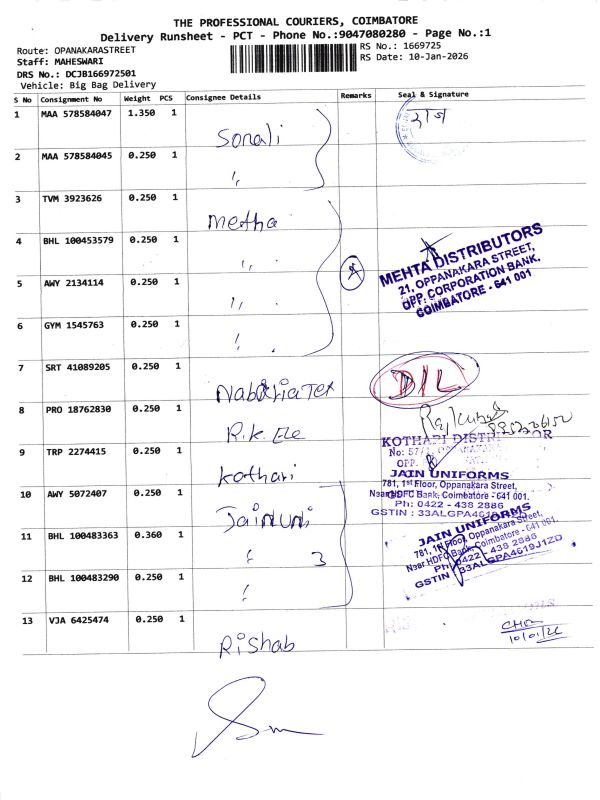 THE PROFESSIONAL COURIERS, COIMBATORE
Delivery Runsheet - PCT - Phone No.:9047080280 - Page No.:1
Route: OPANAKARASTREET
Staff: MAHESWARI
DRS No.: DCJB166972501
Vehicle: Big Bag Delivery
RS No.: 1669725
RS Date: 10-Jan-2026
S No Consignment No Weight PCS Consignee Details Remarks Seal & Signature
1 MAA 578584047 1.350 1 Sonali
2 MAA 578584045 0.250 1 "
3 TVM 3923626 0.250 1 Metha
4 BHL 100453579 0.250 1 "
5 AWY 2134114 0.250 1 "
6 GYM 1545763 0.250 1 "
MEHTA DISTRIBUTORS
21, OPPANAKARA STREET,
OPP. CORPORATION BANK,
COIMBATORE - 641 001
7 SRT 41089205 0.250 1 NabariaTex D/L
8 PRO 18762830 0.250 1 R.K. Ele
9 TRP 2274415 0.250 1 Kothari
KOTHARI DISTRIBUTOR
No: 57/
OPP.
10 AWY 5072407 0.250 1 Jain Uni
JAIN UNIFORMS
781, 1st Floor, Oppanakara Street,
Near HDFC Bank, Coimbatore - 641 001.
Ph: 0422 - 438 2886
GSTIN : 33ALGPA4619J1ZD
11 BHL 100483363 0.360 1 " 3
12 BHL 100483290 0.250 1 "
JAIN UNIFORMS
781, 1st Floor, Oppanakara Street,
Near HDFC Bank, Coimbatore - 641 001.
Ph: 0422 - 438 2886
GSTIN : 33ALGPA4619J1ZD
13 VJA 6425474 0.250 1 Rishab
10/01/26